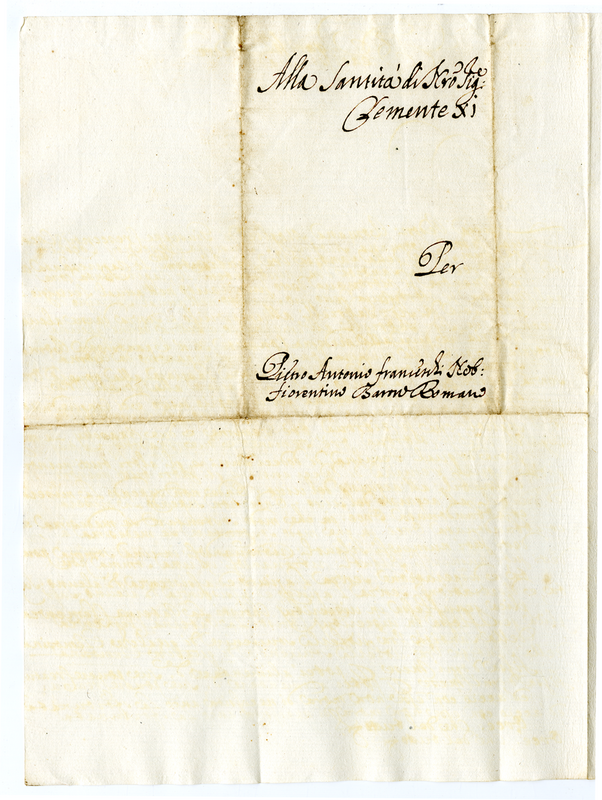 Alla Santità di Nro Sigre
Clemente XI
Per
Pietro Antonio franceschi Nob:
fiorentino Barone Romano